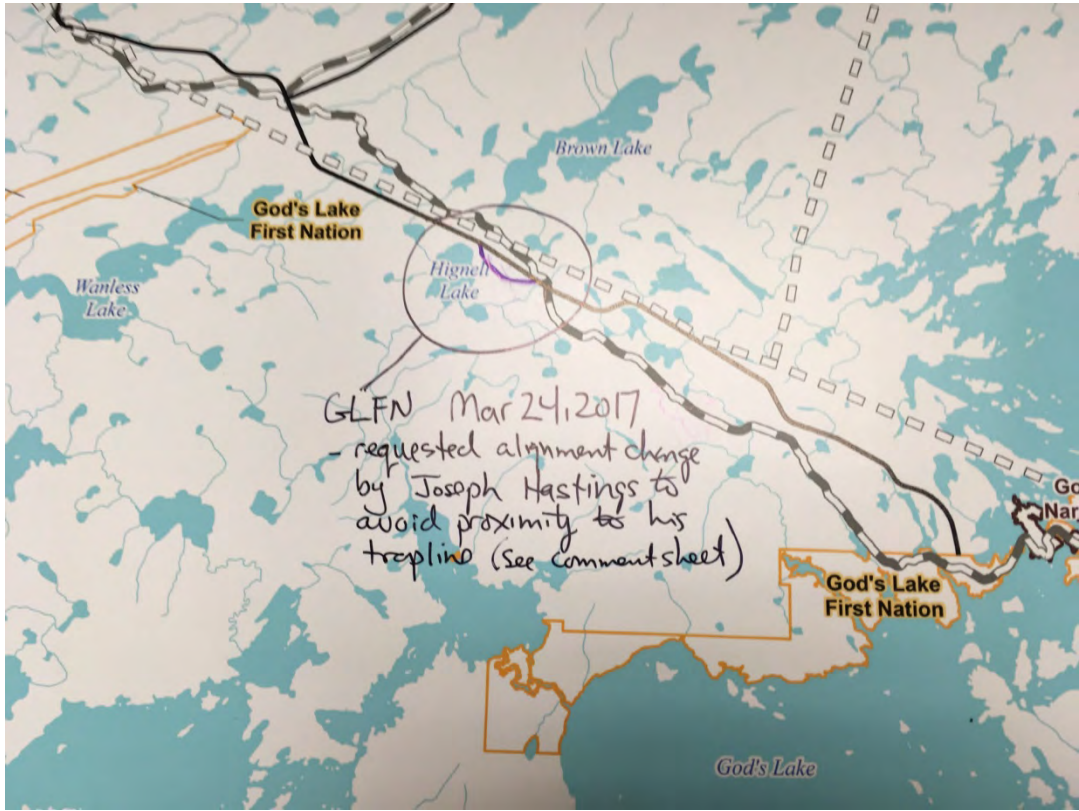 Brown Lake
God's Lake
First Nation
Wanless
Lake
Hignell
Lake
GLFN Mar 24, 2017
- requested alignment change
by Joseph Hastings to
avoid proximity to his
trapline (See comment sheet)
Go
Nar
God's Lake
First Nation
God's Lake